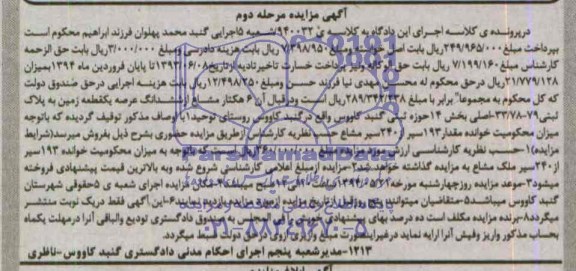 آگهی مزایده مرحله دوم
درپرونده ی کلاسه اجرای این دادگاه به کلاسه ی ۹۴۰۰۳۲ شعبه ۵اجرایی گنبد محمد پهلوان فرزند ابراهیم محکوم است
بپرداخت مبلغ ۲۴۹/۹۶۵/۰۰۰ریال بابت اصل خواسته ومبلغ ۷/۳۹۸/۹۵۰ریال بابت هزینه دادرسی ومبلغ ۳/۰۰۰/۰۰۰ریال بابت حق الزحمه
کارشناس مبلغ ۷/۱۹۹/۱۶۰ریال بابت حق الوکاله ونیز پرداخت خسارت تاخیرتادیه ازتاریخ ۱۳۹۳/۰۶/۰۸ تا پایان فروردین ماه ۱۳۹۴بمیزان
۲۱/۷۷۹/۱۲۸ریال درحق محکوم له محسن مهدی نیا فرزند حسن ومبلغ ۱۲/۴۹۸/۲۵۰ریال بابت هزینه اجرایی درحق صندوق دولت
که کل محکوم به مجموعا" برابر با مبلغ ریال است ودرقبال آن ۶ هکتار مشاع ازششدانگ عرصه یکقطعه زمین به پلاک
ثبتی ۳۳۷۸-۷۹اصلی بخش ۱۴حوزه ثبتی گنبد کاووس واقع درگنبد کاووس روستای توحید۱بااوصاف مذکور توقیف گردیده که باتوجه
میزان محکومیت خوانده مقدار۱۹۳سیر از۲۴۰سیر مشاع حسب نظریه کارشناس ازطریق مزایده حضوری بشرح ذیل بفروش میرسد(شرایط
مزایده)۱-حسب نظریه کارشناسی ارزش مورد مزایده مبلغ ریال است که باتوجه به میزان محکومیت خوانده ۱۹۳سیر
از۲۴۰سیر ملک مشاع به مزایده گذاشته خواهد شد۲-مزایده ازمبلغ اعلامی کارشناسی شروع شده وبه بالاترین قیمت پیشنهادی فروخته
میشود۳-موعد مزایده روزچهارشنبه مورخه ساعت صبح میباشد۴-مکان مزایده اجرای شعبه ی ۵حقوقی شهرستان
گنبد کاووس میباشد۵-متقاضیان میتوانند پنج روزقبل ازتاریخ مزایده ازمورد مزایده بازدید نمایند۶-این آگهی فقط دریک نوبت منتشر
میگردد۸-برنده مزایده مکلف است ده درصد بهای پیشنهادی خویش را فی المجلس به صندوق دادگستری تودیع والباقی آنرا درمهلت یکماه
بحساب مذکور واریز وفیش آنرا ارایه نماید درغیراینصورت مبلغ واریزی ازوی درحق دولت ضبط میگردد.
۱۲۱۳-مدیرشعبه پنجم اجرای احکام مدنی دادگستری گنبد کاووس-ناظری
ParsNamadData
۰۲۱-۸۸۳۴۹۶۷۰-۵